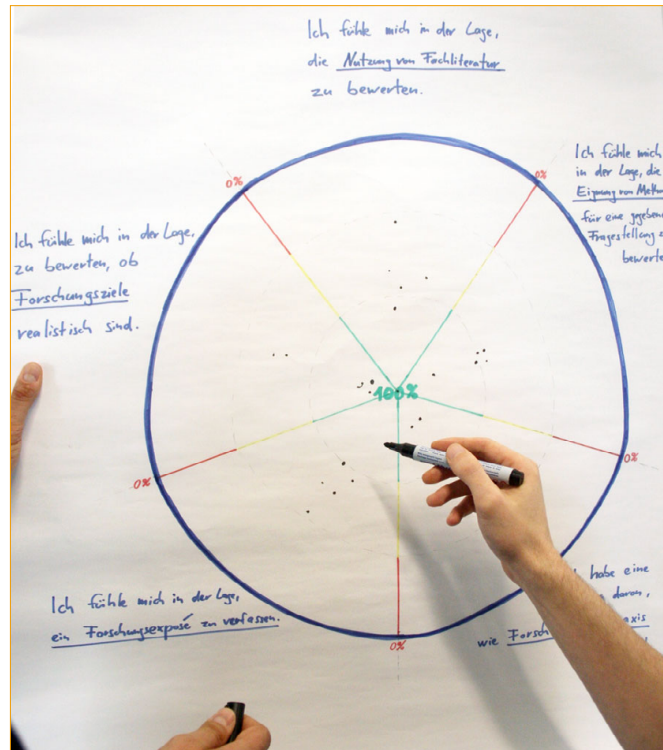 Ich fühle mich in der Lage,
die Nutzung von Fachliteratur
zu bewerten.
Ich fühle mich
in der Lage, die
Eignung von
für eine
Fragestellung
Ich fühle mich in der Lage,
zu bewerten, ob
Forschungsziele
realistisch sind.
0%
0%
100%
0%
0%
0%
Ich fühle mich in der Lage,
ein Forschungsexposé zu verfassen.
habe eine
daran,
wie